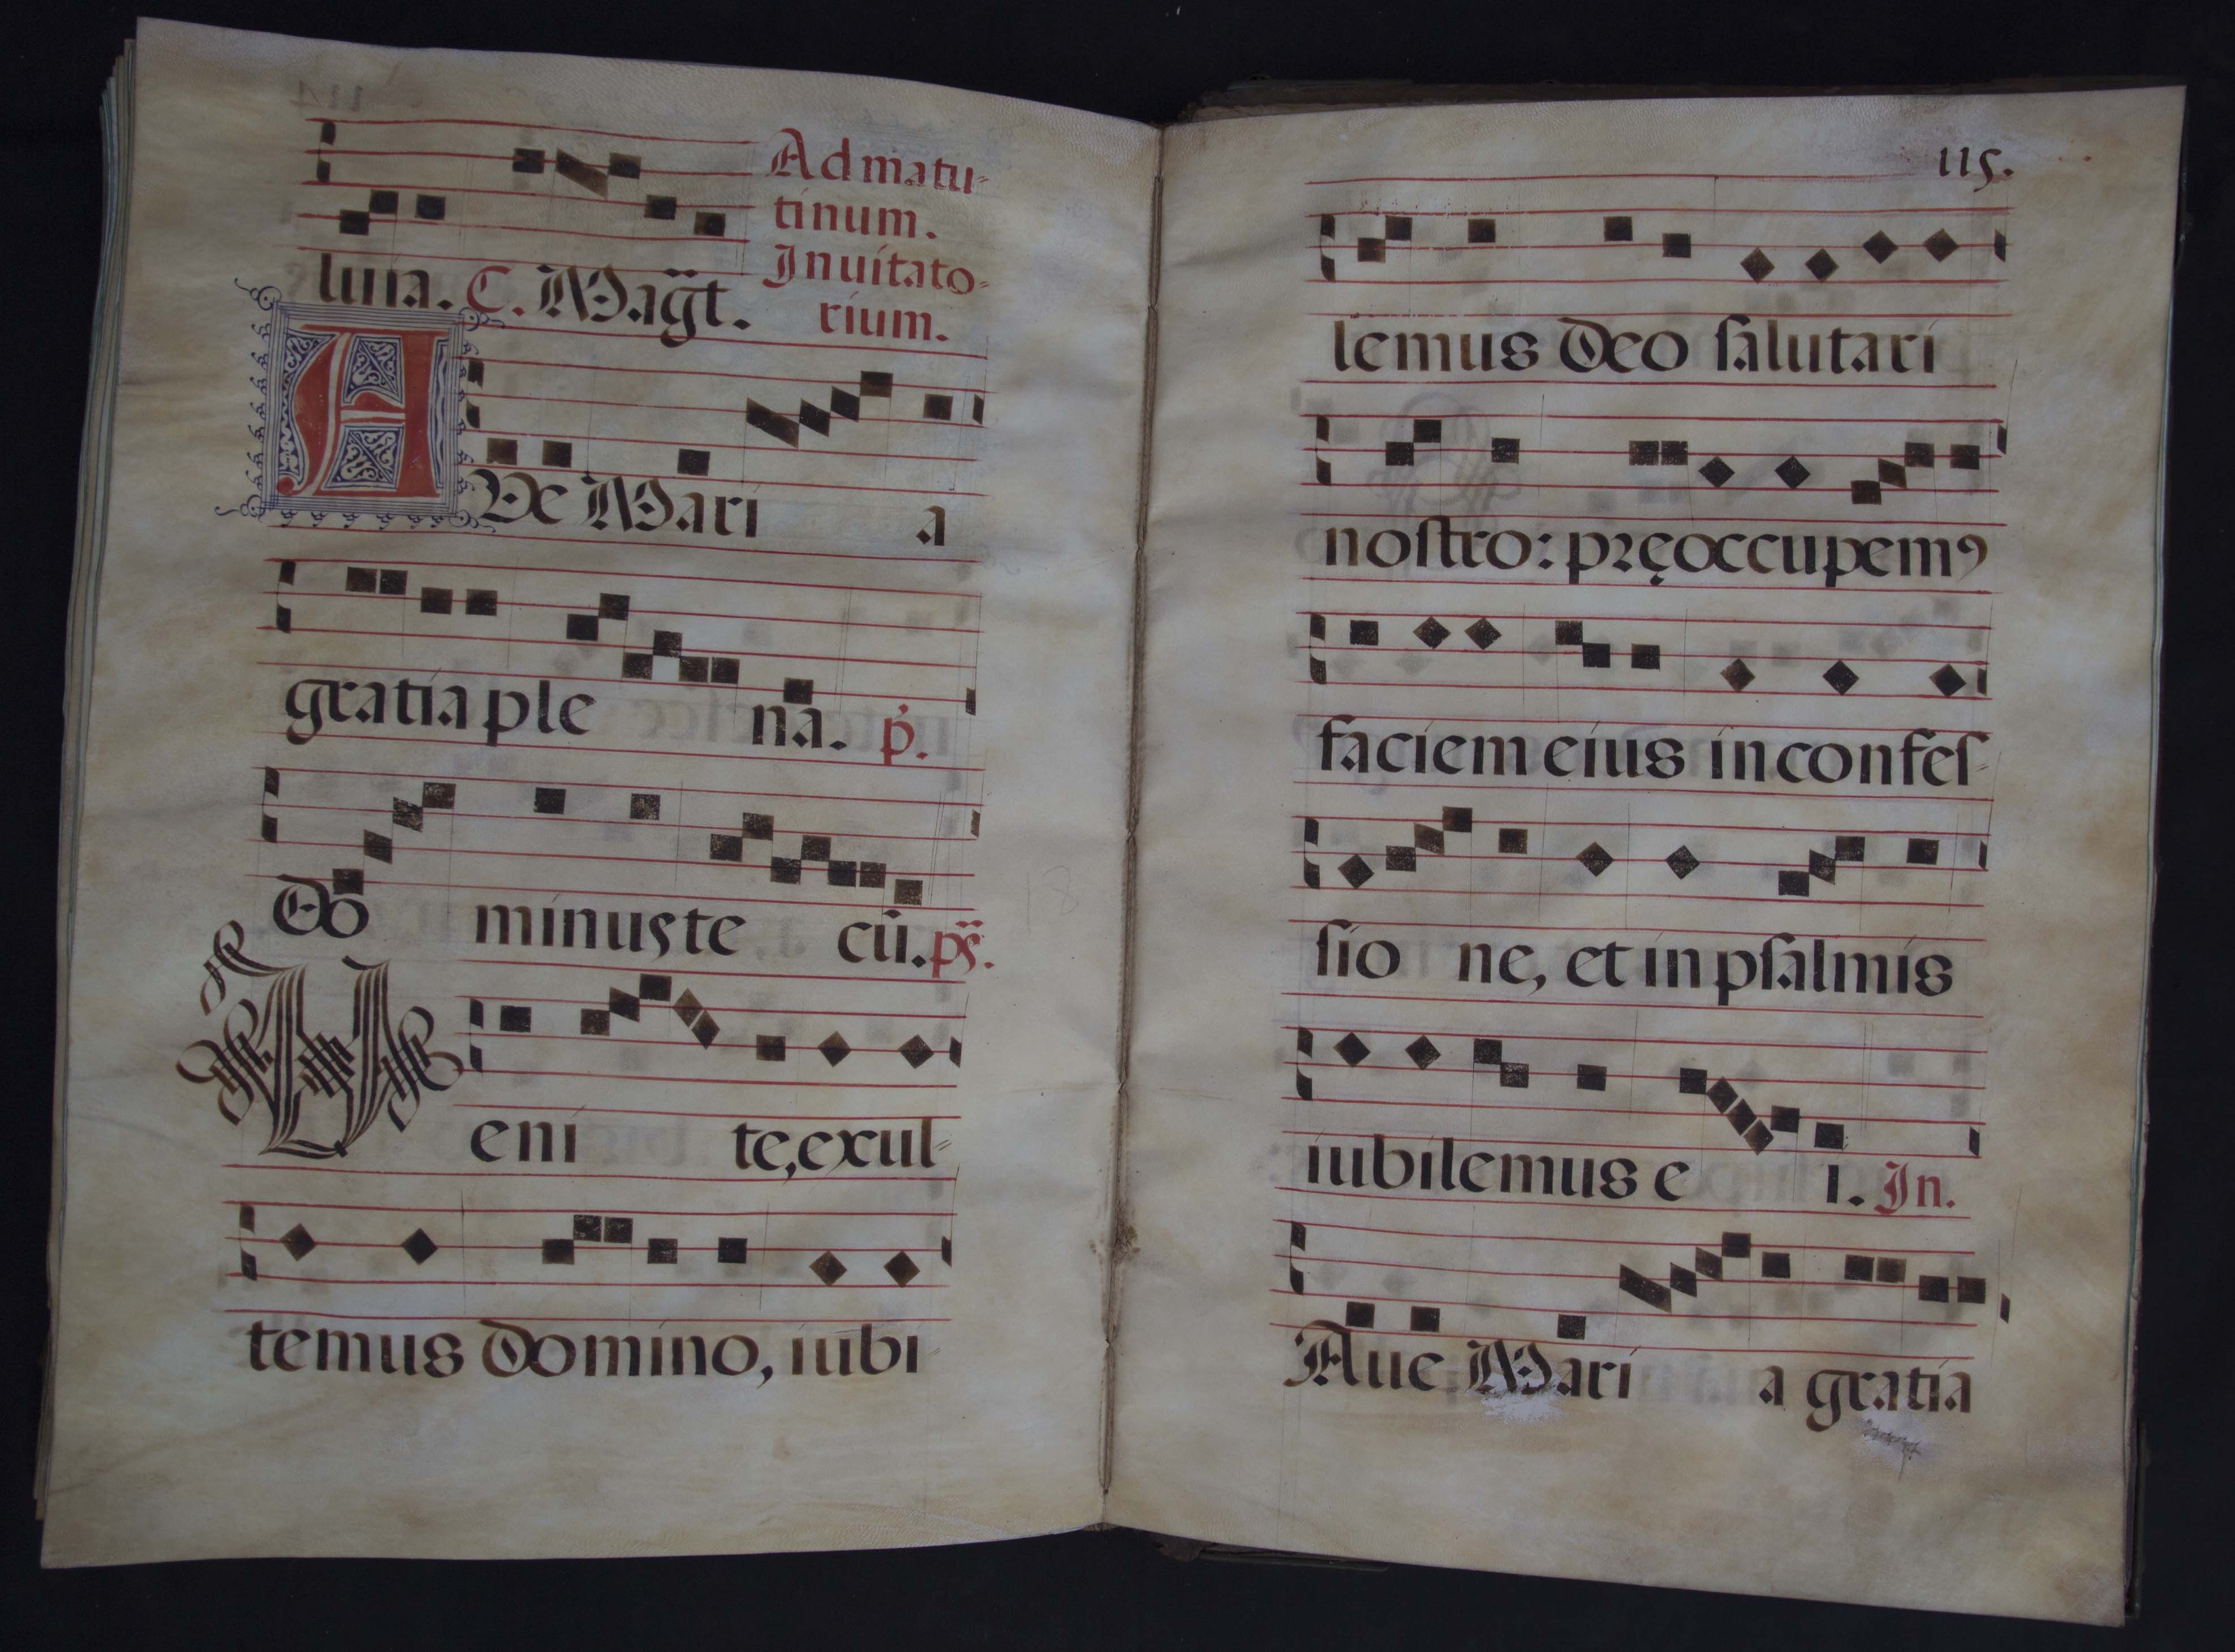 luia. C. Magt̃.
Ad matu-
tinum.
Inuitato-
rium.
AVe Mari a
gratia ple na. p̃.
Do minus te cũ. ps̃.
Veni te, exul-
temus Domino, iubi
115.
lemus Deo salutari
nostro: pręoccupemꝰ
faciem eius in confes-
sio ne, et in psalmis
iubilemus e i. In.
Aue Mari a gratia
18